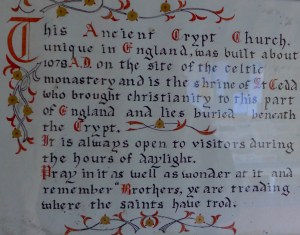 This Ancient Crypt Church,
unique in England, was built about
1078 A.D. on the site of the celtic
monastery and is the shrine of St Cedd
who brought christianity to this part
of England and lies buried beneath
the Crypt.
It is always open to visitors during
the hours of daylight.
Pray in it as well as wonder at it and
remember "Brothers, ye are treading
where the saints have trod.